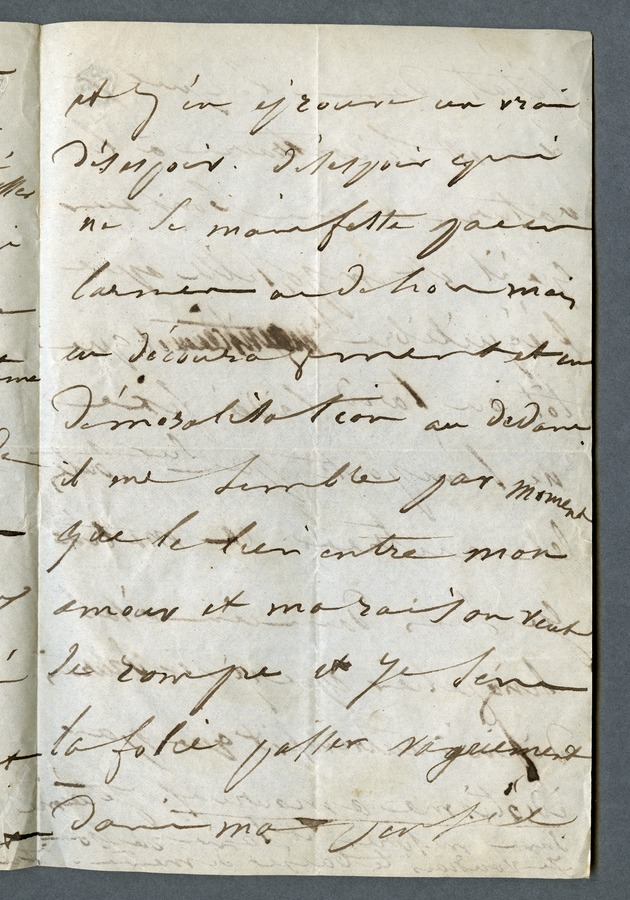 et j'en éprouve un vrai
désespoir. désespoir qui
ne se manifeste pas en
larmes au dehors mais
en découragement et en
démoralisation au dedans
il me semble par moment
que le lien entre mon
amour et ma raison veut
se rompre et je sens
la folie passer vaguement
dans ma pensée